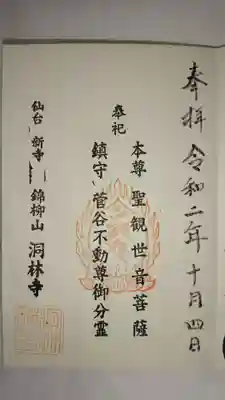 奉拝 令和二年 十月 四日
本尊 聖観世音菩薩
奉祀
鎮守 菅谷不動尊御分霊
仙台 新寺
錦柳山 洞林寺